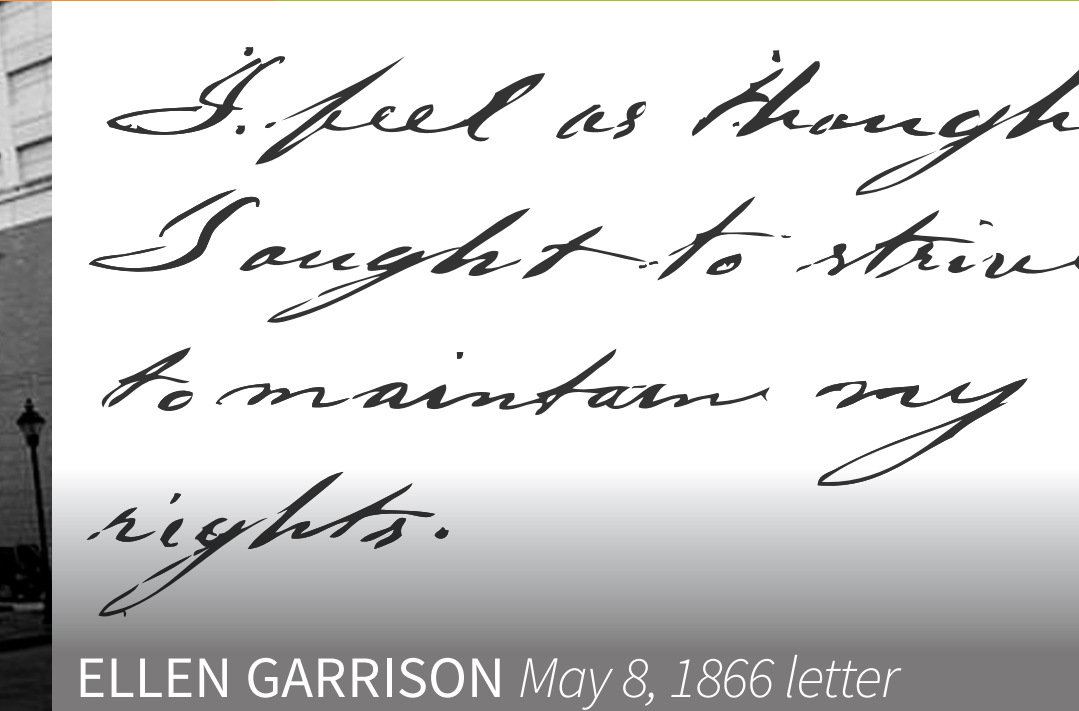 I feel as though
I ought to strive
to maintain my
rights.
ELLEN GARRISON May 8, 1866 letter